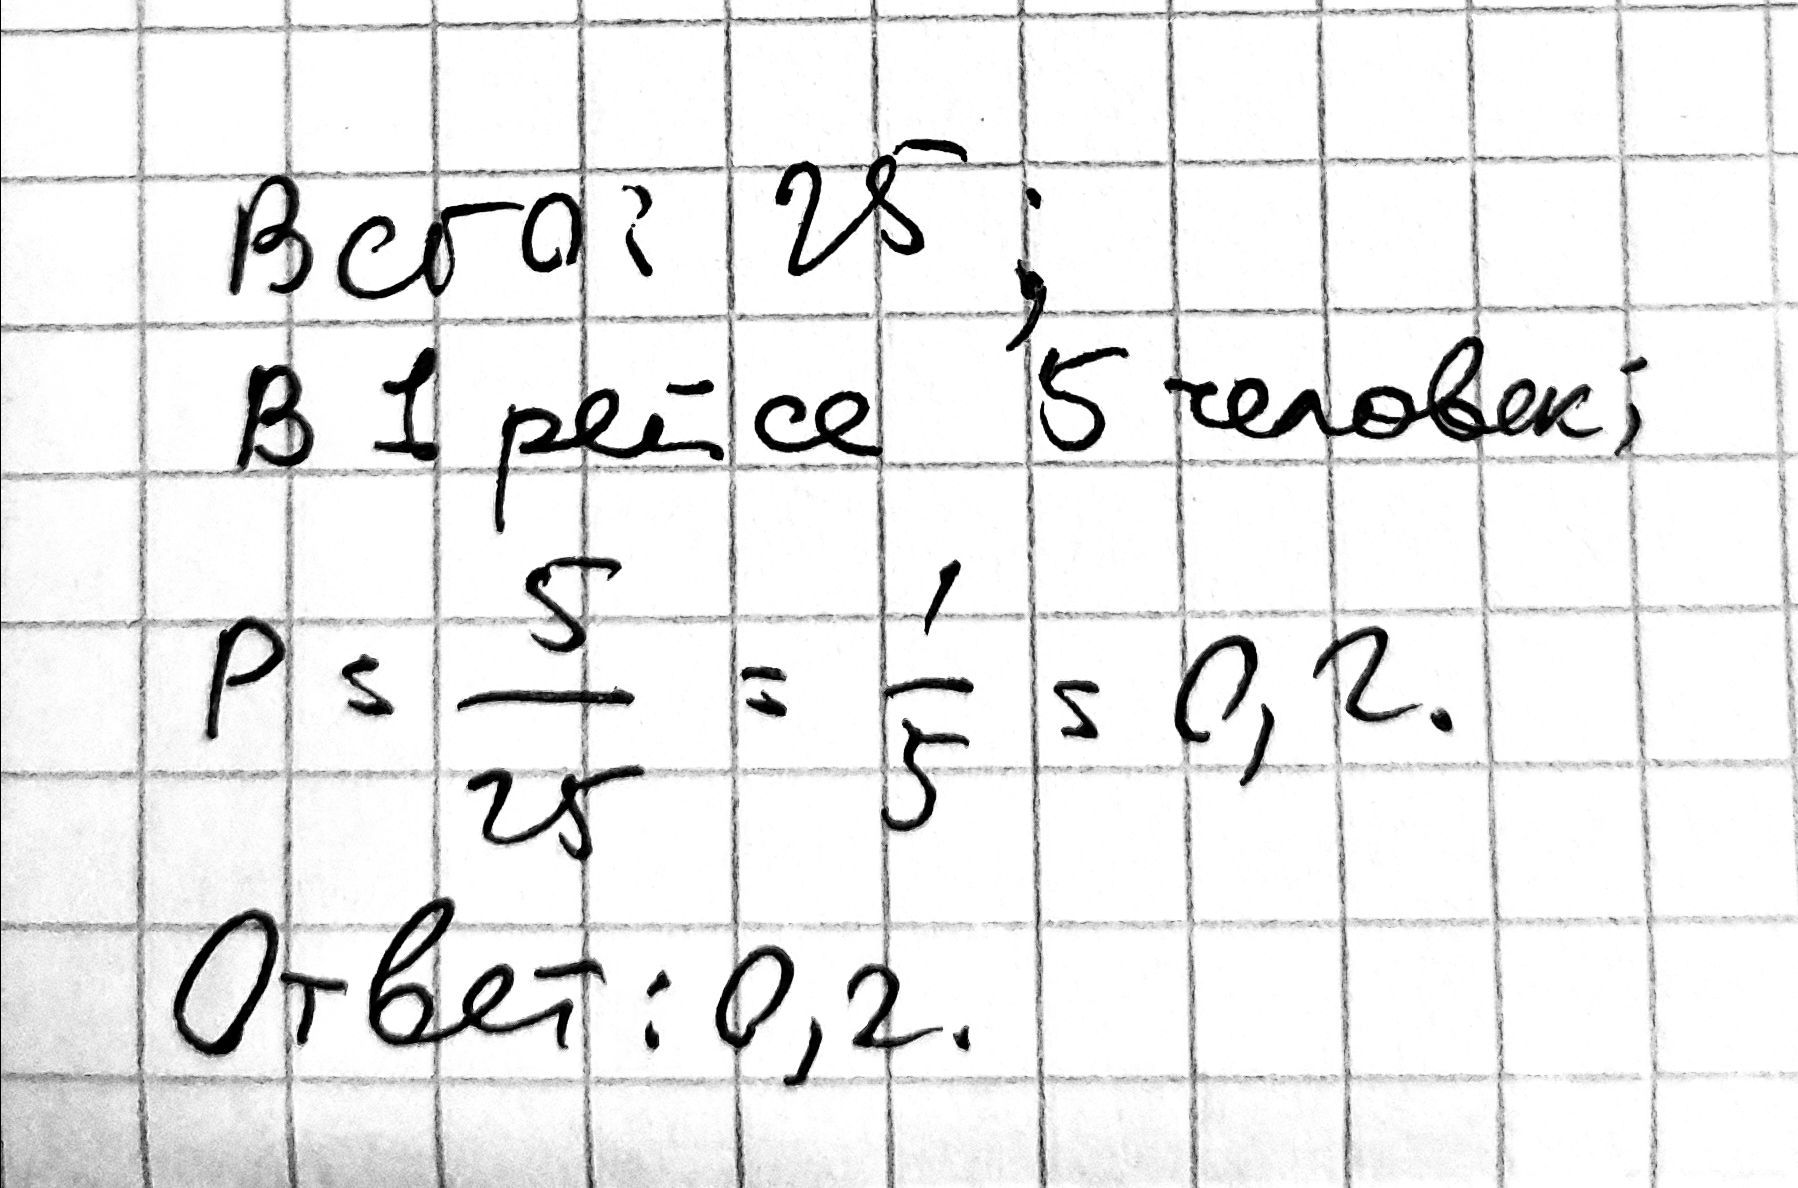 Всего: 25;
В 1 рейсе 5 человек;
P = 5/25 = 1/5 = 0,2.
Ответ: 0,2.